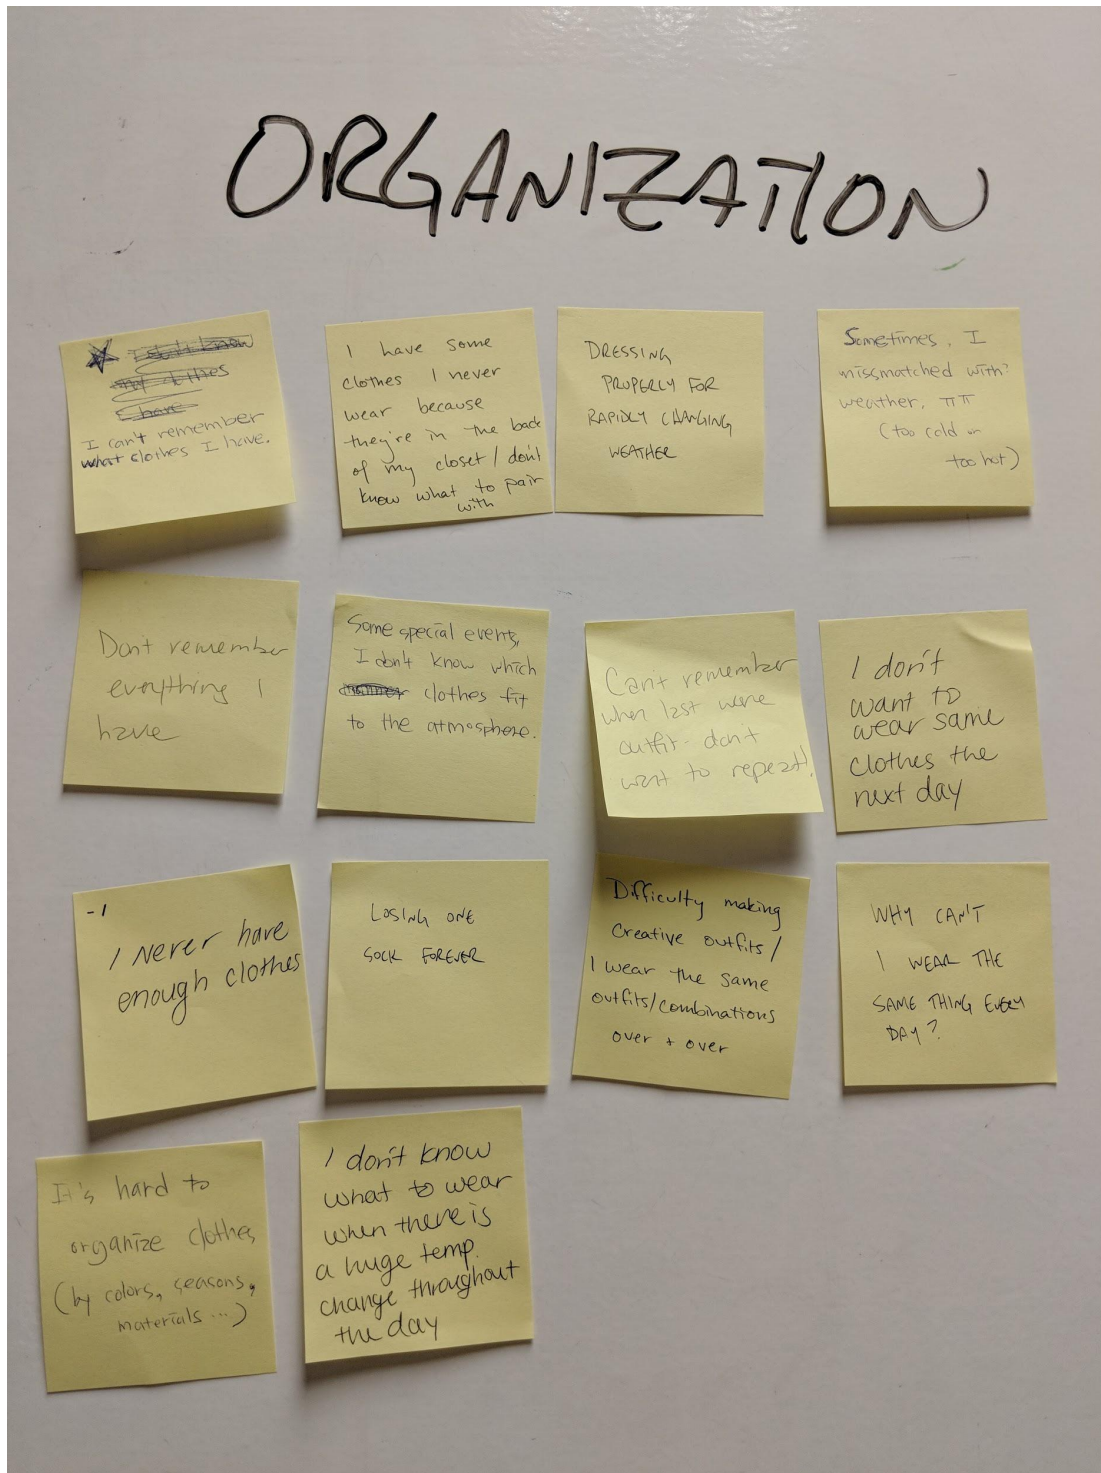 ORGANIZATION
I don't know
what clothes
I have
I can't remember
what clothes I have.
I have some
clothes I never
wear because
they're in the back
of my closet / don't
know what to pair
with
DRESSING
PROPERLY FOR
RAPIDLY CHANGING
WEATHER
Sometimes, I
missmatched with
weather, ㅠㅠ
(too cold or
too hot)
Don't remember
everything I
have
Some special events,
I don't know which
clothes fit
to the atmosphere.
Can't remember
when last wore
outfit - don't
want to repeat!
I don't
want to
wear same
clothes the
next day
-1
I never have
enough clothes
LOSING ONE
SOCK FOREVER
Difficulty making
creative outfits/
I wear the same
outfits/combinations
over + over
WHY CAN'T
I WEAR THE
SAME THING EVERY
DAY?
It's hard to
organize clothes
(by colors, seasons,
materials ...)
I don't know
what to wear
when there is
a huge temp.
change throughout
the day